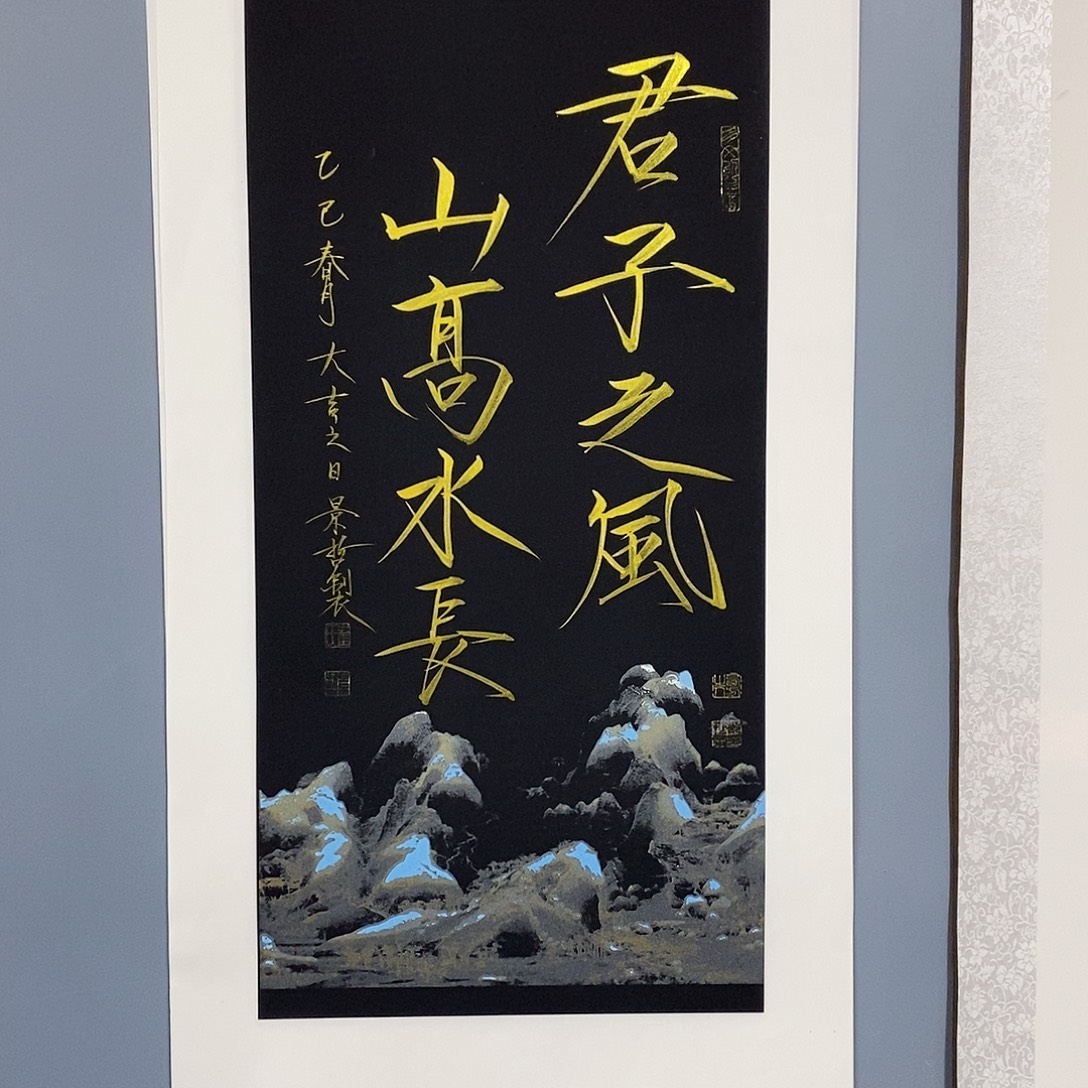 君子之風
山高水長
乙巳春月大吉之日景哲製